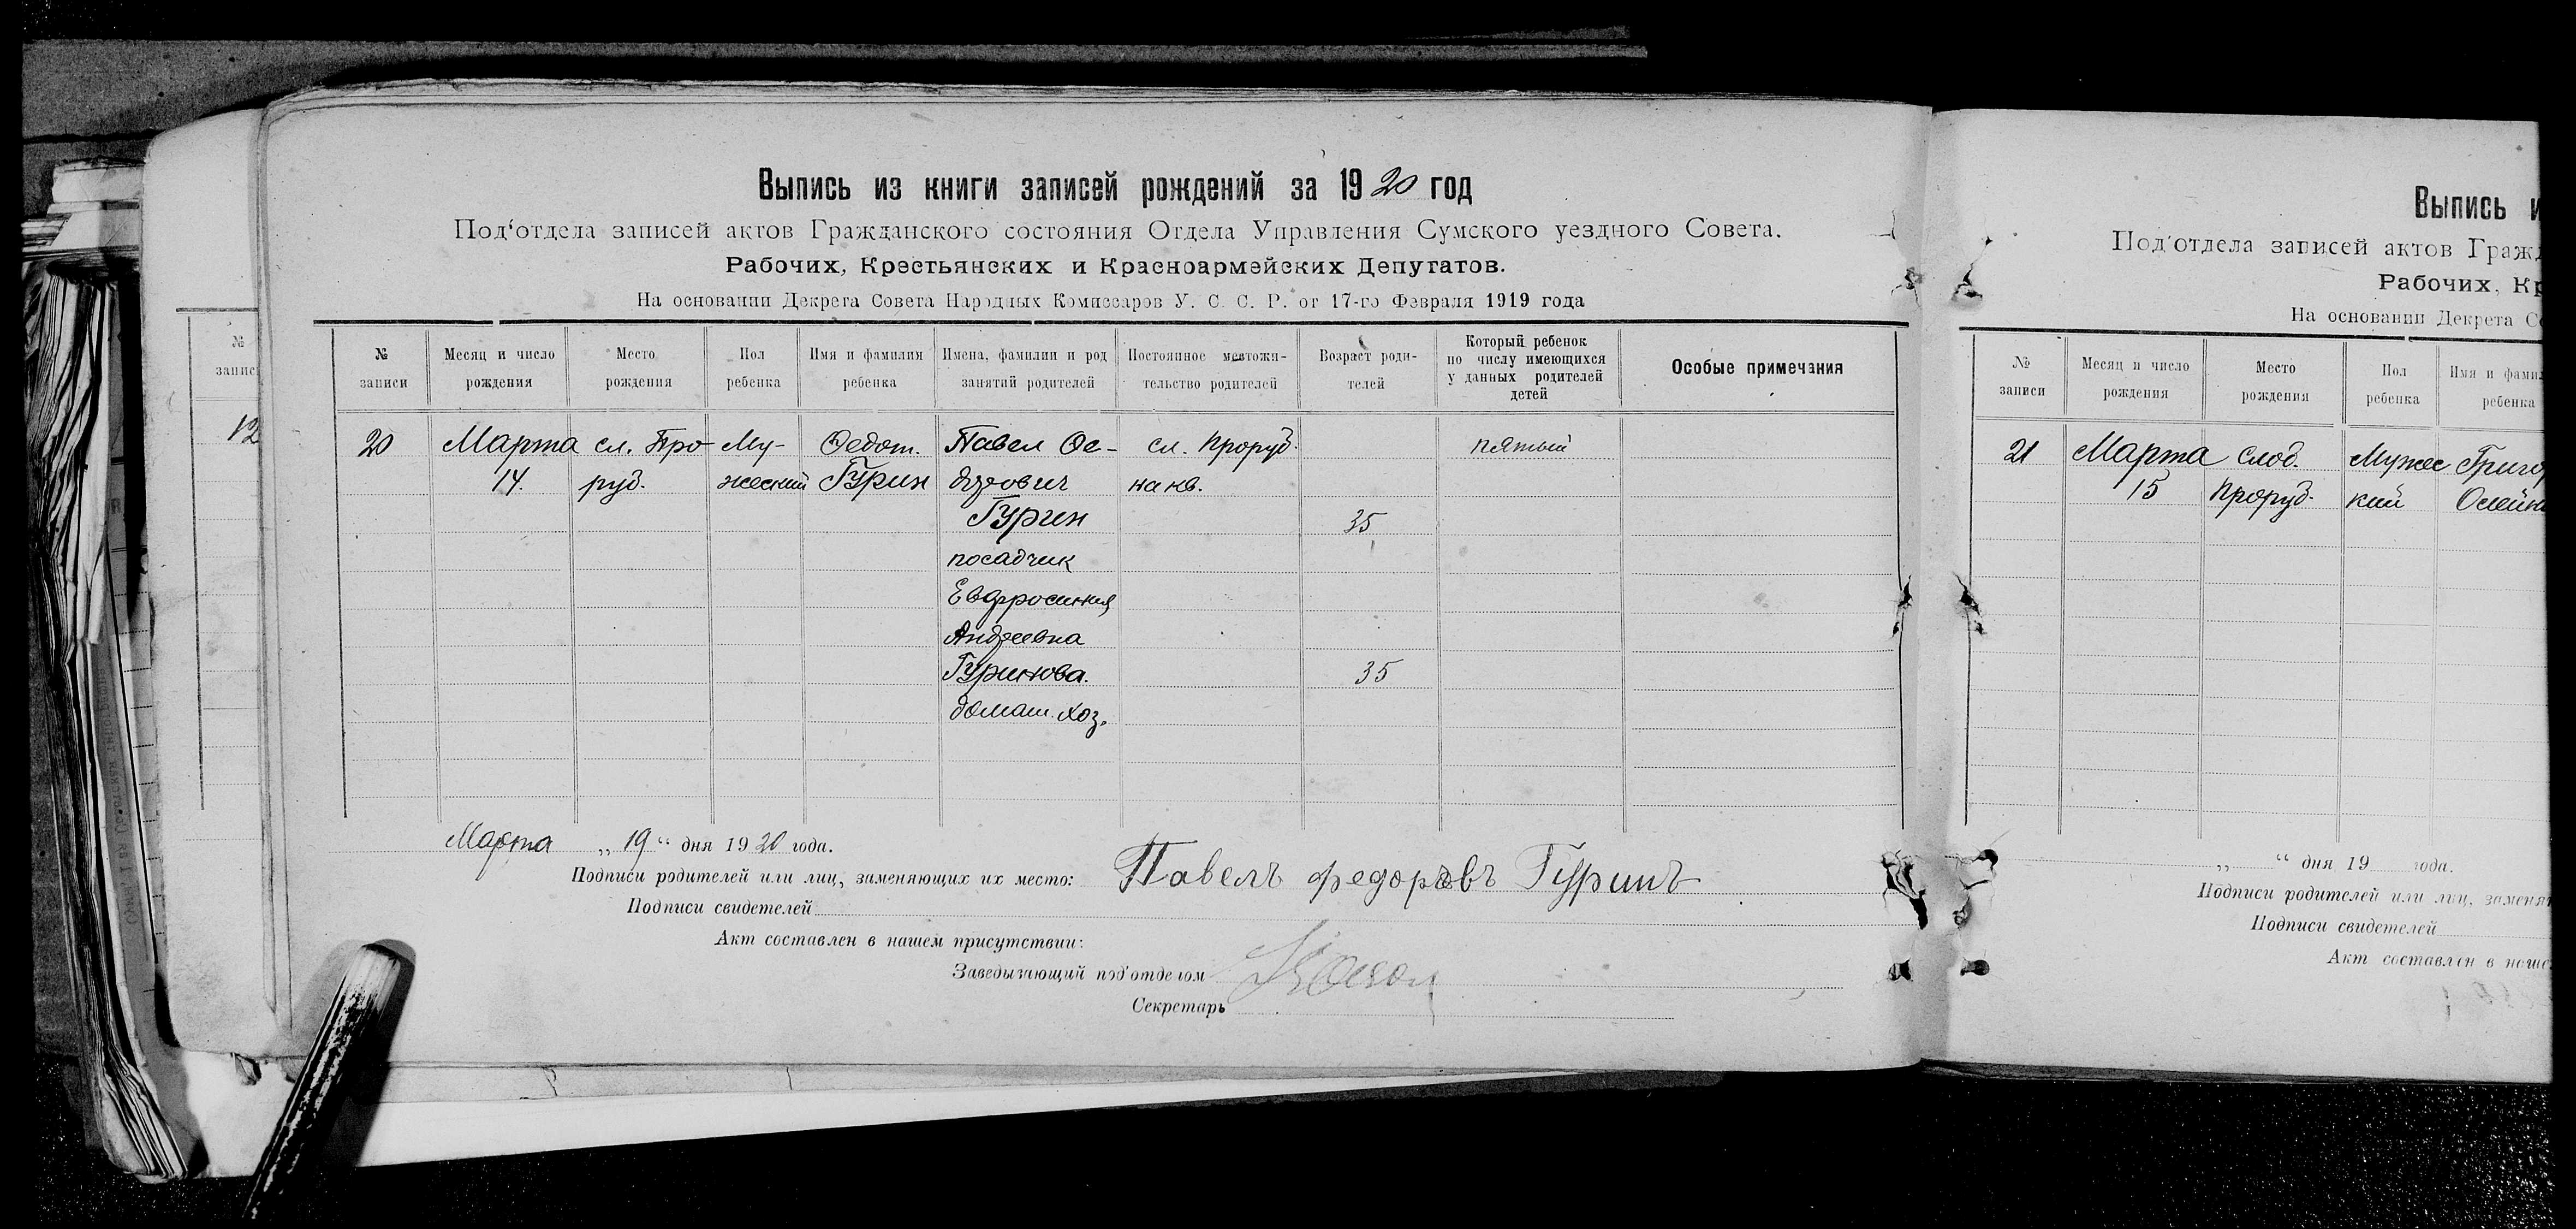 Выпись из книги записей рождений за 1920 год
Под'отдела записей актов Гражданского состояния Отдела Управления Сумского уездного Совета.
Рабочих, Крестьянских и Красноармейских Депутатов.
На основании Декрета Совета Народных Комиссаров У. С. С. Р. от 17-го Февраля 1919 года
№ записи
Месяц и число рождения
Место рождения
Пол ребенка
Имя и фамилия ребенка
Имена, фамилии и род занятий родителей
Постоянное местожительство родителей
Возраст родителей
Который ребенок по числу имеющихся у данных родителей детей
Особые примечания
20 Марта сл. Про- Му- Ѳедот. Павел Ѳе- сл. Проруб. пятый
14. руб. жеский Гурин дорович на кв.
Гурин 35
посадчик
Евфросиния
Андреевна
Гуринова. 35
домаш. хоз.
Марта „19“ дня 1920 года.
Подписи родителей или лиц, заменяющих их место: Павелъ федоровъ Гуринъ
Подписи свидетелей
Акт составлен в нашем присутствии:
Заведывающий под'отделом
Секретарь
№ запис
12
Выпись и
Под'отдела записей актов Гражд
Рабочих, Кр
На основании Декрета Со
№ записи
Месяц и число рождения
Место рождения
Пол ребенка
Имя и фамил ребенка
21 Марта Слод. Мужес Григо
15 Проруб. кий
„ “ дня 19 года.
Подписи родителей или лиц, заменя
Подписи свидетелей
Акт составлен в наше